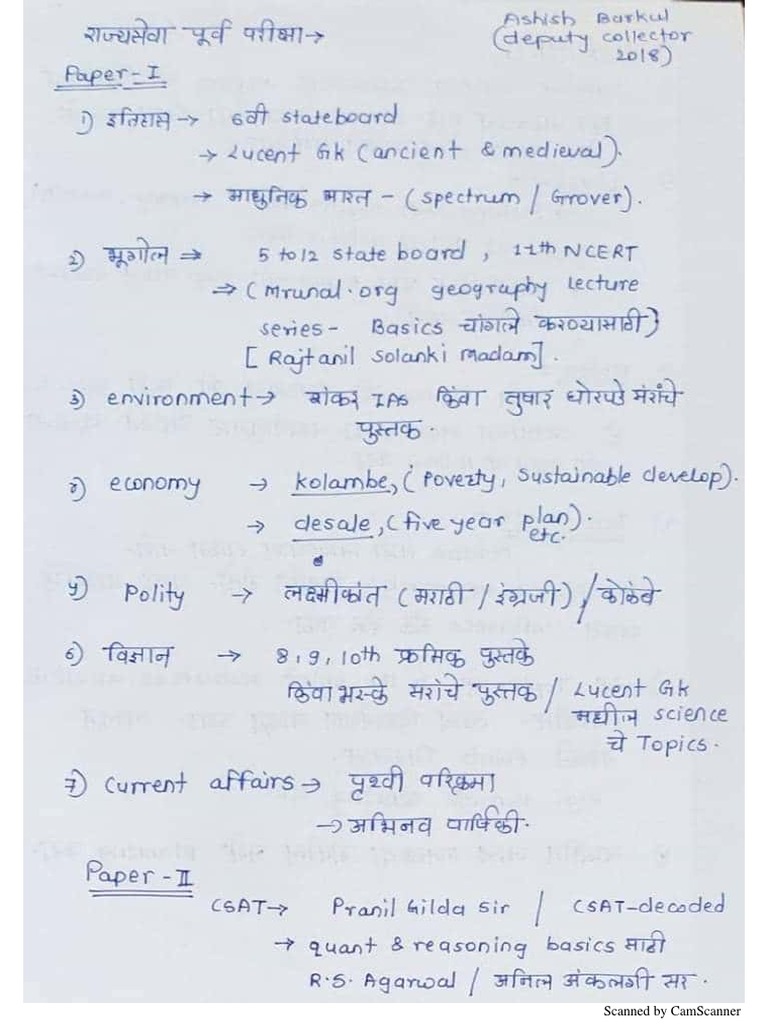 Ashish Barkul
राज्यसेवा पूर्व परीक्षा→ (deputy collector
2018)
Paper-I
१) इतिहास → 6वी stateboard
→ Lucent Gk (ancient & medieval).
→ आधुनिक भारत - (spectrum / Grover).
२) भूगोल → 5 to 12 state board, 11th NCERT
→ (Mrunal.org geography lecture
series- Basics चांगले करण्यासाठी)
[Rajtanil Solanki madam].
३) environment→ शंकर IAS किंवा तुषार घोरपडे सरांचे
पुस्तक.
४) economy → kolambe, (Poverty, Sustainable develop).
→ desale, (five year plan).
etc.
५) Polity → लक्ष्मीकांत (मराठी / इंग्रजी) / कोळंबे
६) विज्ञान → 8,9,10th क्रमिक पुस्तके
किंवा भस्के सरांचे पुस्तक / Lucent Gk
मधील science
चे Topics.
७) Current affairs → पृथ्वी परिक्रमा
→ अभिनव वार्षिकी.
Paper-II
CSAT→ Pranil Gilda sir / CSAT-decoded
→ quant & reasoning basics साठी
R.S. Agarwal / अनिल अंकलगी सर.
Scanned by CamScanner